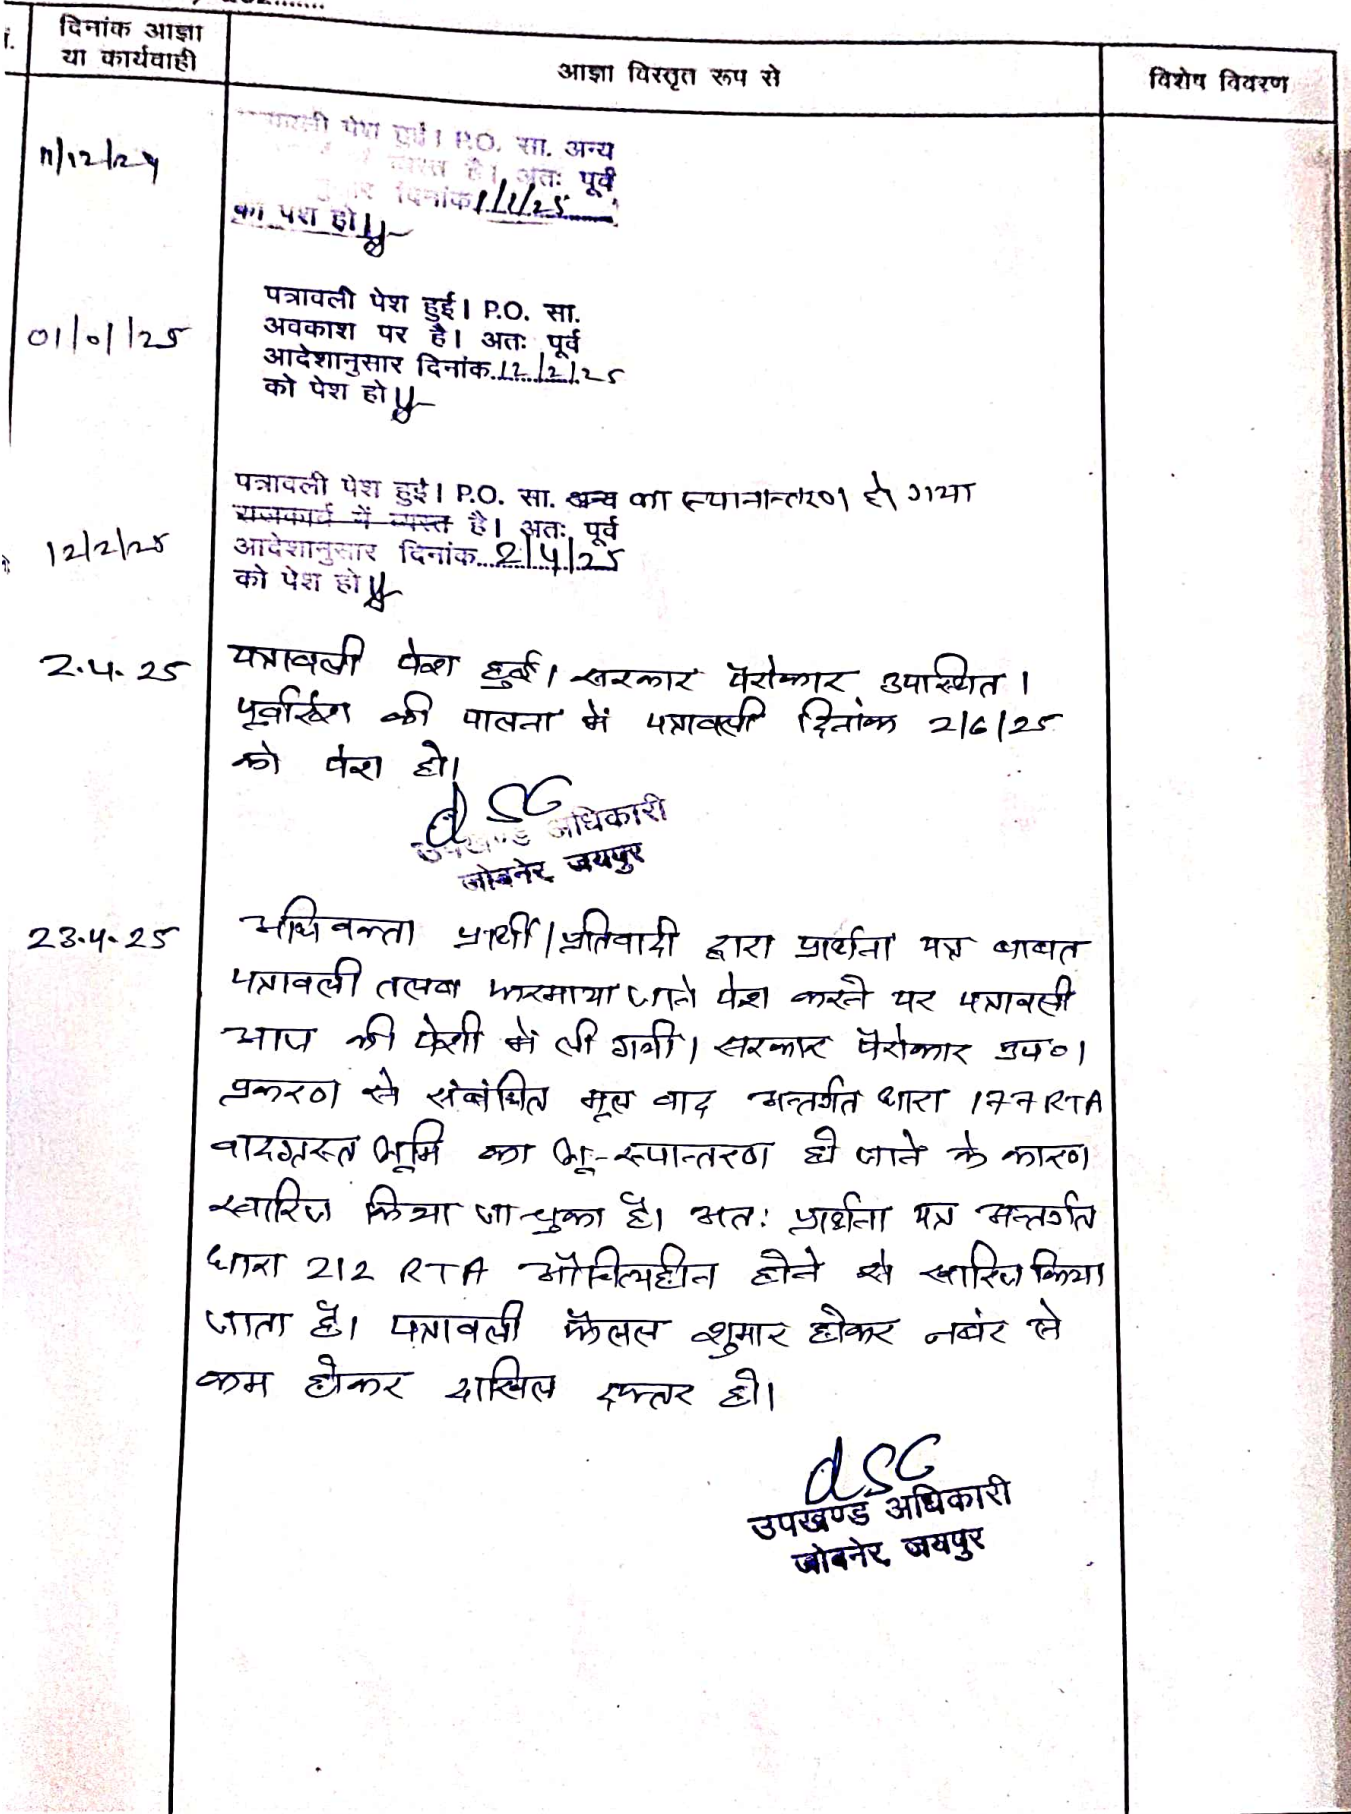 दिनांक आज्ञा
या कार्यवाही
आज्ञा विस्तृत रूप से
विशेष विवरण
11/12/24
पेश हुई। P.O. सा. अन्य
व्यस्त है। अतः पूर्व
दिनांक 1/1/25
को पेश हो
01/01/25
पत्रावली पेश हुई। P.O. सा.
अवकाश पर है। अतः पूर्व
आदेशानुसार दिनांक 12/2/25
को पेश हो
12/2/25
पत्रावली पेश हुई। P.O. सा. अन्य का स्थानान्तरण हो गया
राजकार्य में व्यस्त है। अतः पूर्व
आदेशानुसार दिनांक 2/4/25
को पेश हो
2.4.25
पत्रावली पेश हुई। सरकार पैरोकार उपस्थित।
की पालना में पत्रावली दिनांक 2/6/25
को पेश हो।
उपखण्ड अधिकारी
जोबनेर, जयपुर
23.4.25
अधिवक्ता प्रार्थी/प्रतिवादी द्वारा प्रार्थना पत्र बाबत
पत्रावली तलब फरमाया जाने पेश करने पर पत्रावली
आज की पेशी में ली गयी। सरकार पैरोकार उप०।
प्रकरण से संबंधित मूल वाद अन्तर्गत धारा 177 RTA
वादग्रस्त भूमि का भू-रूपान्तरण हो जाने के कारण
खारिज किया जा चुका है। अतः प्रार्थना पत्र अन्तर्गत
धारा 212 RTA औचित्यहीन होने से खारिज किया
जाता है। पत्रावली फैसल शुमार होकर नबंर से
कम होकर दाखिल दफ्तर हो।
उपखण्ड अधिकारी
जोबनेर, जयपुर